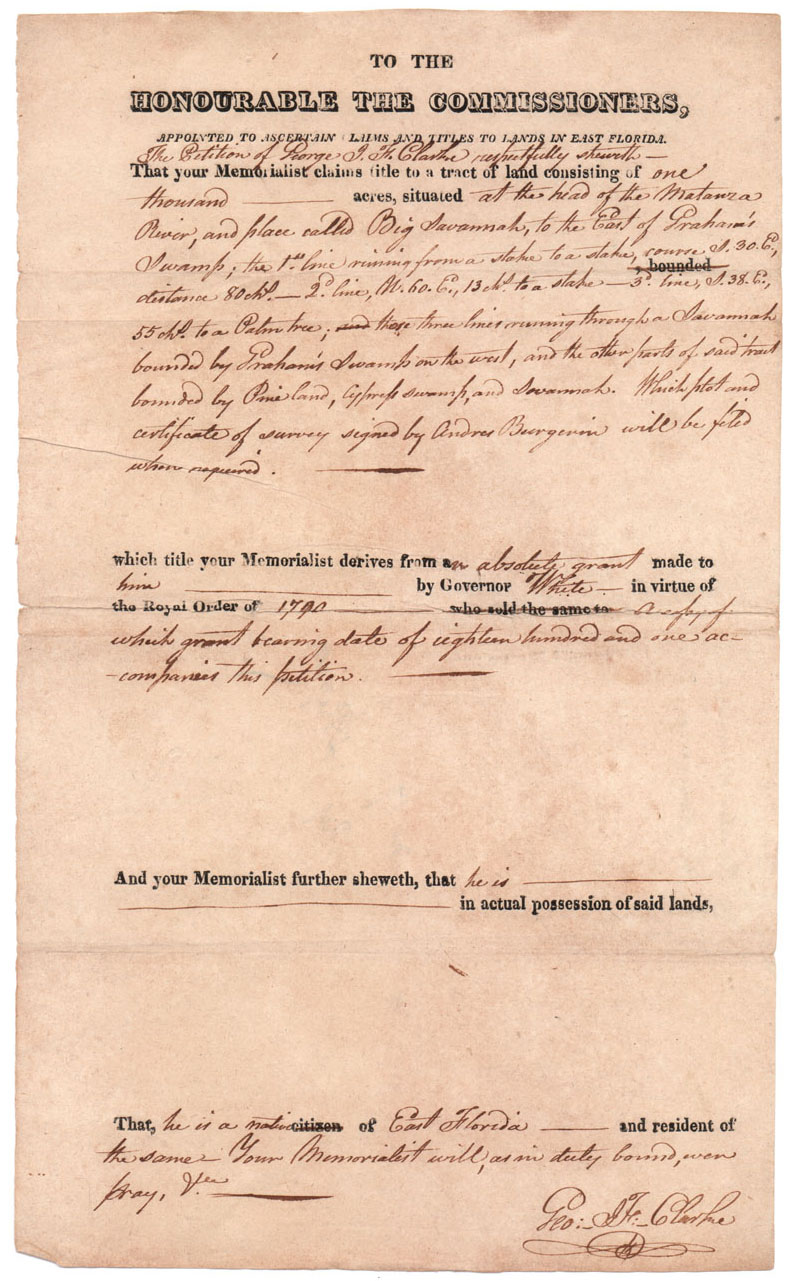 TO THE
HONOURABLE THE COMMISSIONERS,
APPOINTED TO ASCERTAIN CLAIMS AND TITLES TO LANDS IN EAST FLORIDA.
The Petition of George J. F. Clarke respectfully sheweth —
That your Memorialist claims title to a tract of land consisting of one
thousand ——— acres, situated at the head of the Matanza
River, and place called Big Savannah, to the East of Graham's
Swamp; the 1st line running from a stake to a stake, course S. 30. E.,
, bounded
distance 80 chs. — 2d. line, N. 60. E., 13 chs. to a stake — 3d. line, S. 38. E.,
55 chs. to a Palm tree; and these three lines running through a Savannah
bounded by Graham's Swamp on the west, and the other parts of said tract
bounded by Pine land, Cypress swamp, and Savannah. Which plot and
certificate of survey signed by Andres Burgevin will be filed
when required. ———
which title your Memorialist derives from an absolute grant made to
him ——— by Governor White — in virtue of
the Royal Order of 1790 ——— who sold the same to A copy of
which grant bearing date of eighteen hundred and one ac-
-companies this petition. ———
And your Memorialist further sheweth, that he is ———
——— in actual possession of said lands,
That, he is a native citizen of East Florida ——— and resident of
the same — Your Memorialist will, as in duty bound, ever
pray, &c ———
Geo: J. F. Clarke